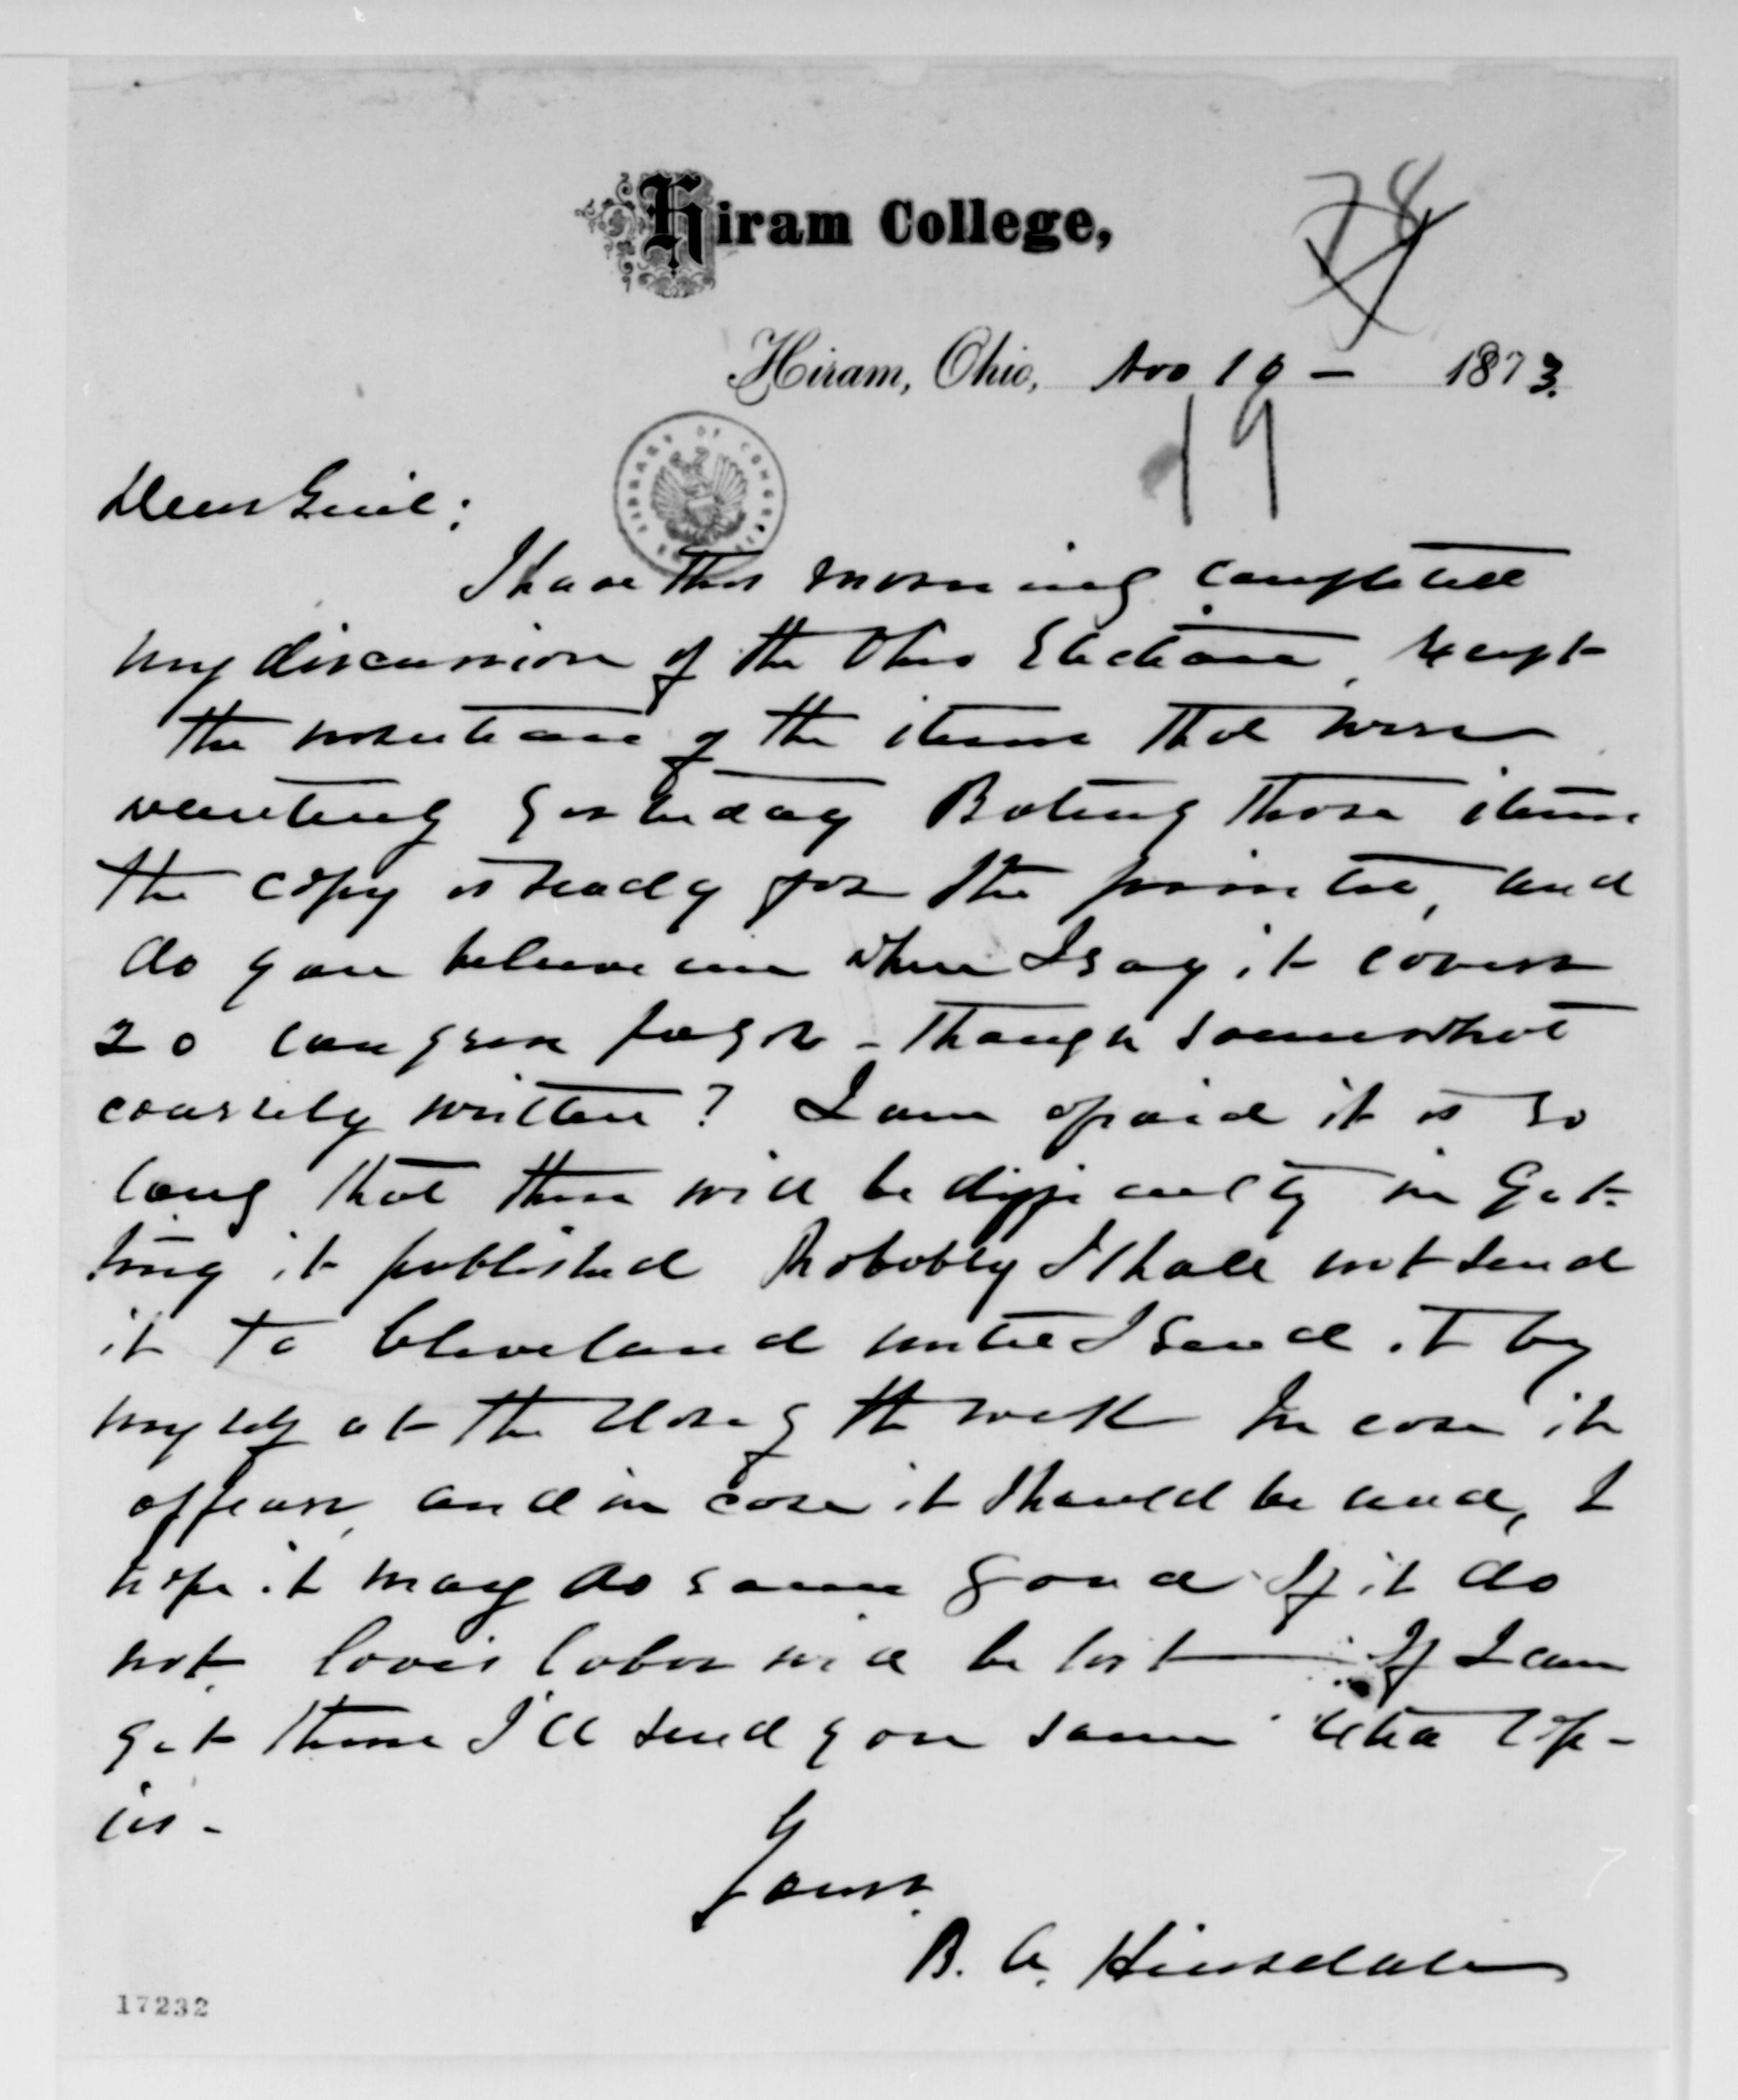 78
Hiram College,
Hiram, Ohio, Nov 19 - 1873.
19
LIBRARY OF CONGRESS
Dear Genl:
I have this morning completed
my discussion of the Ohio Election, except
the insertion of the items that were
wanting yesterday Bating those items
the copy is ready for the printer, and
do you believe me when I say it covers
20 congress pages - though somewhat
coarsely written? I am afraid it is so
long that there will be difficulty in get-
ting it published Probably I shall not send
it to Cleveland until I send it by
myself at the close of the week In case it
appears, and in case it should be read, I
hope it may do some good. If it do
not, love's labor will be lost — If I can
get them I'll send you some extra cop-
ies -
Yours.
B. A. Hinsdale
17232